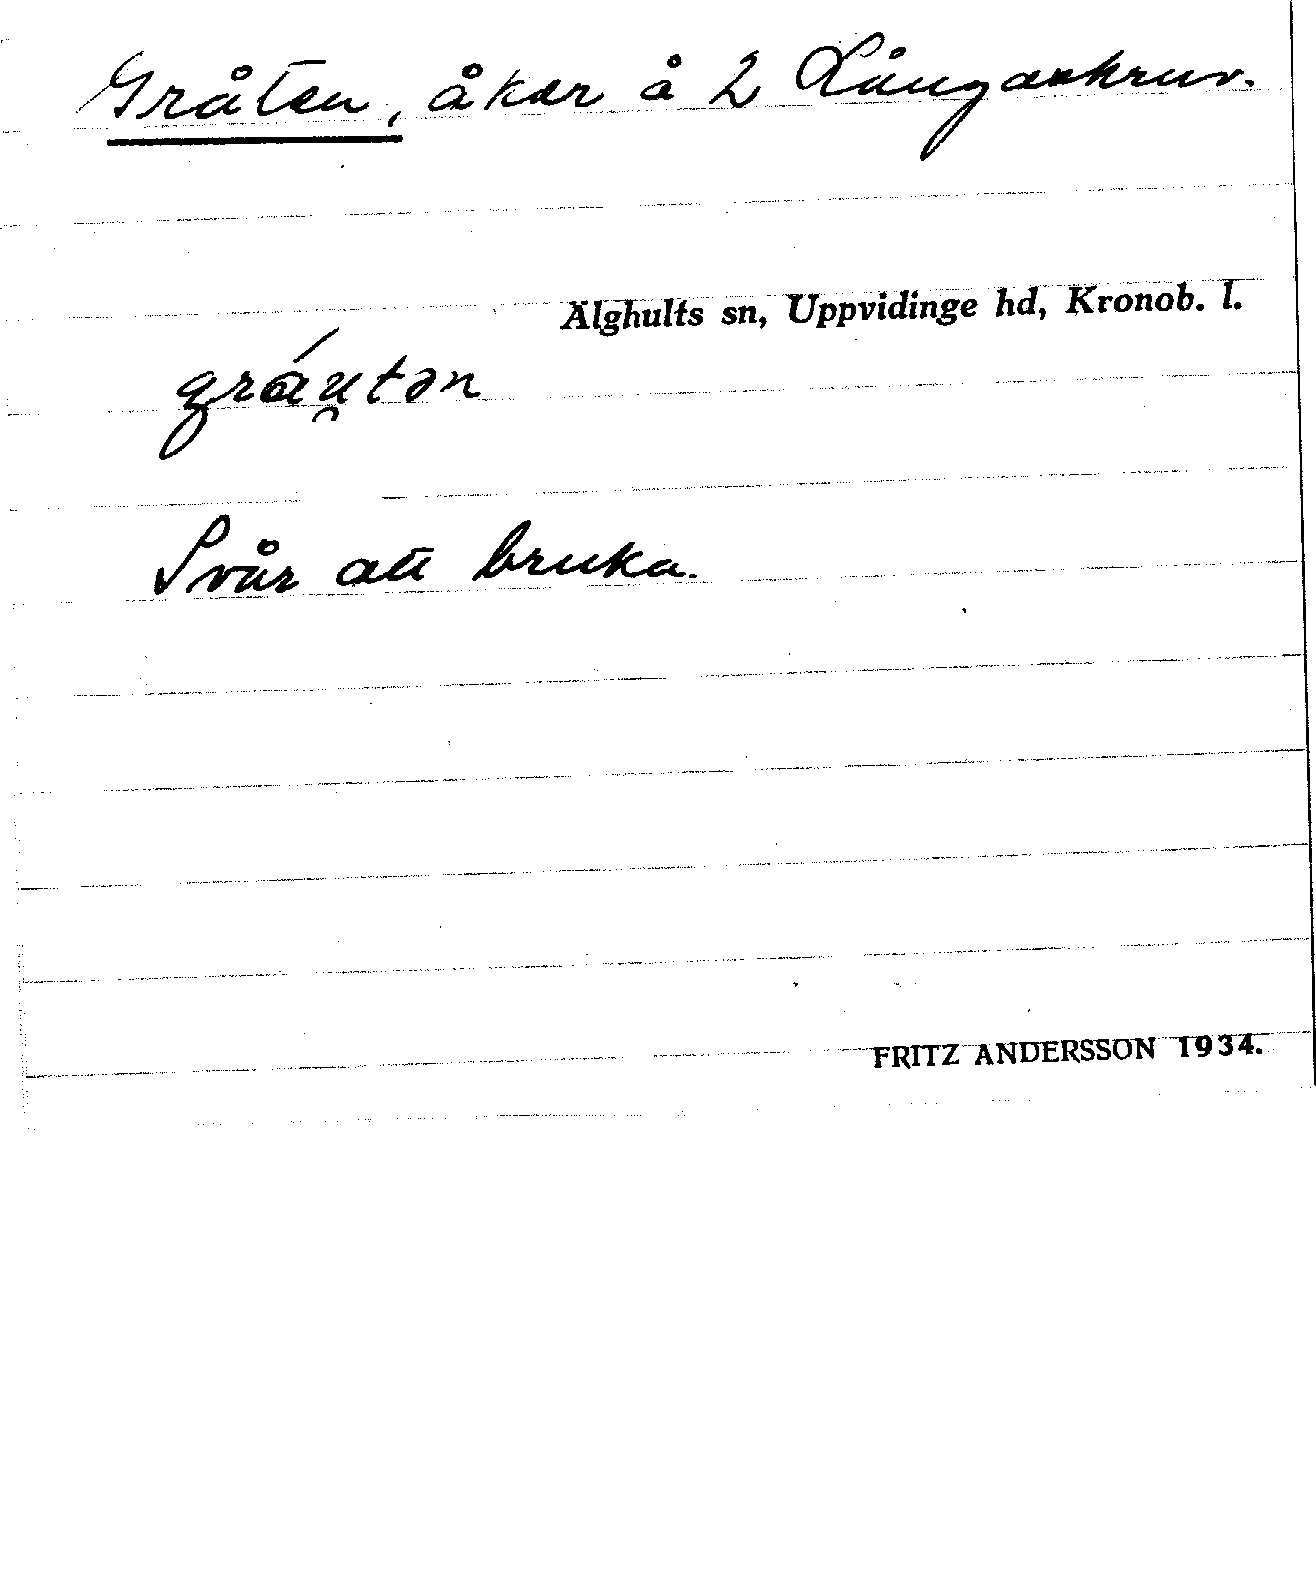 Gråten, åker å 2 Långaskruv.
Älghults sn, Uppvidinge hd, Kronob. l.
gráu̯tən
Svår att bruka.
FRITZ ANDERSSON 1934.